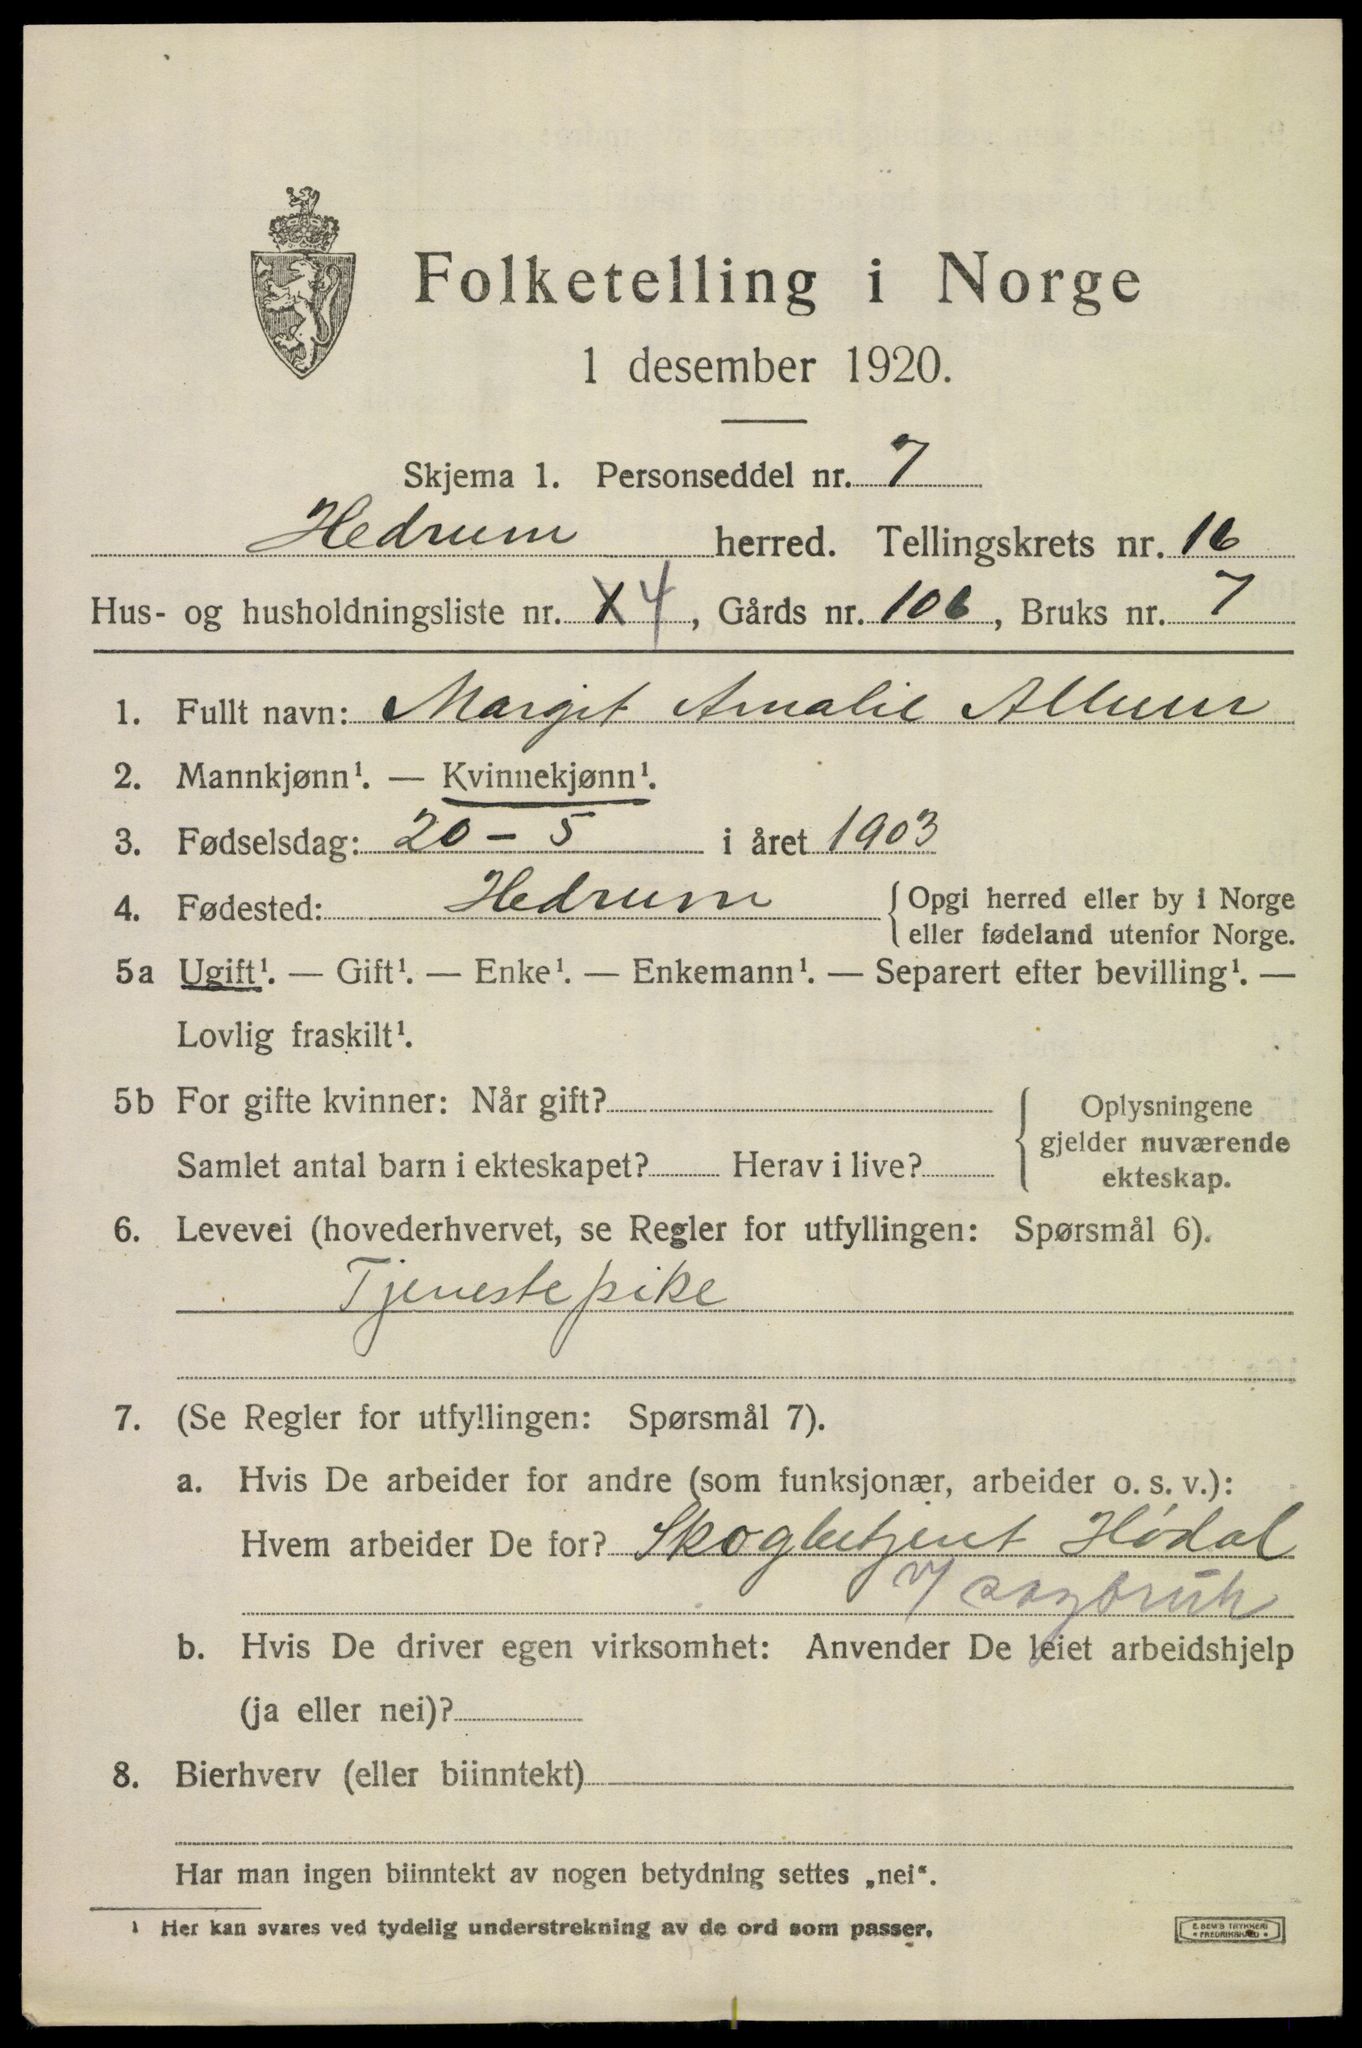 Folketelling i Norge
1 desember 1920.
Skjema 1. Personseddel nr. 7
Hedrum herred. Tellingskrets nr. 16
Hus- og husholdningsliste nr. X 4, Gårds nr. 106, Bruks nr. 7
1. Fullt navn: Margit Amalie Allum
2. Mannkjønn¹. — Kvinnekjønn¹.
3. Fødselsdag: 20 – 5 i året 1903
4. Fødested: Hedrum { Opgi herred eller by i Norge
eller fødeland utenfor Norge.
5a Ugift¹. — Gift¹. — Enke¹. — Enkemann¹. — Separert efter bevilling¹. —
Lovlig fraskilt¹.
5b For gifte kvinner: Når gift? { Oplysningene
gjelder nuværende
Samlet antal barn i ekteskapet? Herav i live? ekteskap.
6. Levevei (hovederhvervet, se Regler for utfyllingen: Spørsmål 6).
Tjenestepike
7. (Se Regler for utfyllingen: Spørsmål 7).
a. Hvis De arbeider for andre (som funksjonær, arbeider o. s. v.):
Hvem arbeider De for? Skogbetjent Hødal
v/ sagbruk
b. Hvis De driver egen virksomhet: Anvender De leiet arbeidshjelp
(ja eller nei)?
8. Bierhverv (eller biinntekt)
Har man ingen biinntekt av nogen betydning settes „nei“.
¹ Her kan svares ved tydelig understrekning av de ord som passer.
E. SEM'S TRYKKERI
* FREDRIKSHALD *